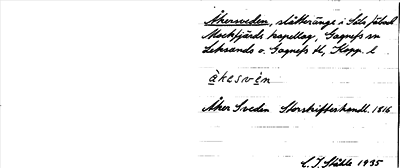 Åkersveden, slåtteränge i Sils, fäbod
Mockfjärds kapellag, Gagnefs sn
Leksands o. Gagnefs tl, Kopp. l
àkesvèn
Åker Sveden Storskifteshandl. 1816
C. I. Ståhle 1935